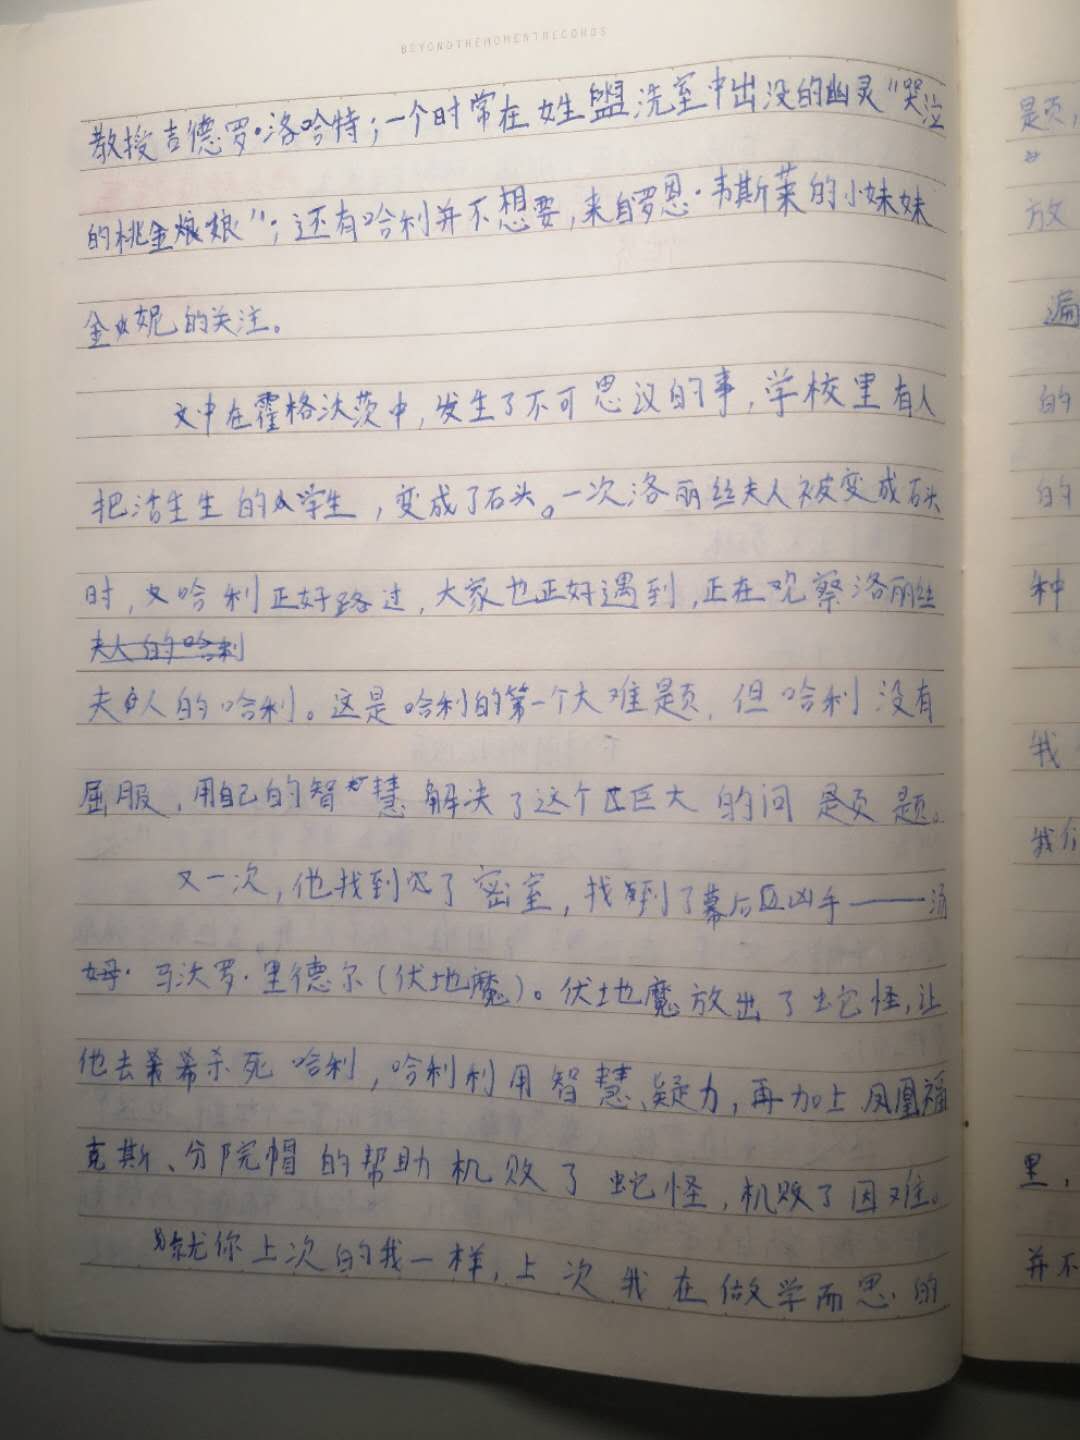 BEYONDTHEMOMENTRECORDS
教授吉德罗·洛哈特；一个时常在女生盥洗室中出没的幽灵“哭泣
的桃金娘娘”；还有哈利并不想要，来自罗恩·韦斯莱的小妹妹
金妮的关注。
文中在霍格沃茨中，发生了不可思议的事，学校里有人
把活生生的学生，变成了石头。一次洛丽丝夫人被变成石头
时，哈利正好路过，大家也正好遇到，正在观察洛丽丝
夫人的哈利
夫人的哈利。这是哈利的第一个大难题，但哈利没有
屈服，用自己的智慧解决了这个巨大的问题。
又一次，他找到了密室，找到了幕后凶手——汤
姆·马沃罗·里德尔（伏地魔）。伏地魔放出了蛇怪，让
他去杀死哈利，哈利利用智慧、疑力，再加上凤凰福
克斯、分院帽的帮助机败了蛇怪，机败了困难。
就你上次的我一样，上次我在做学而思的
是页，
放
漏
的
的
种
我
我们
里，
并不